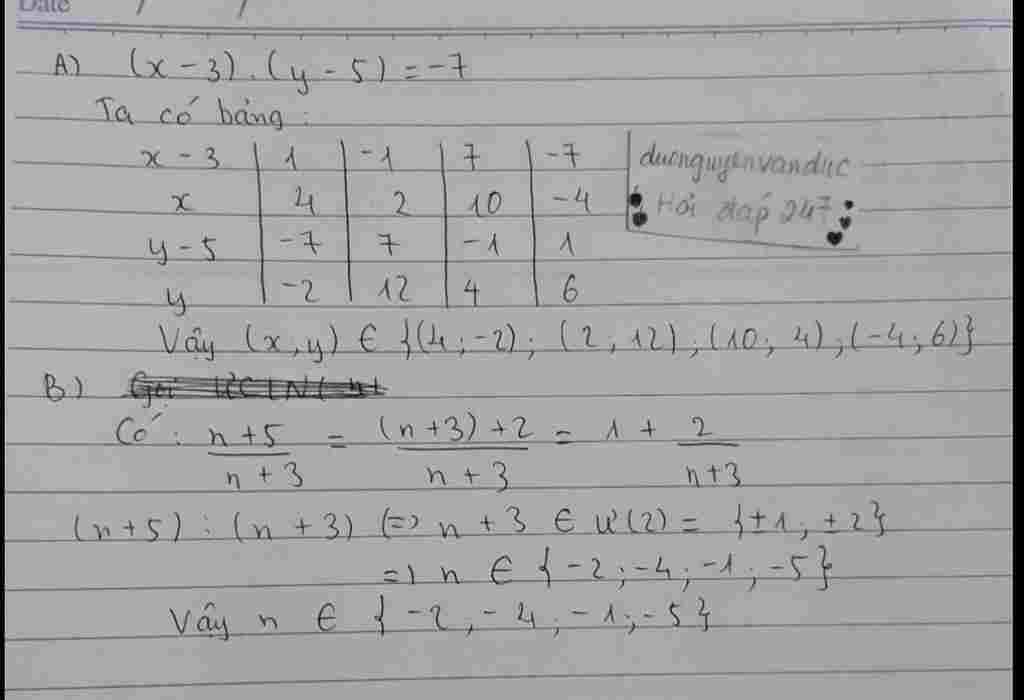 Date / /
A) (x - 3) . (y - 5) = -7
Ta có bảng :
x - 3 | 1 | -1 | 7 | -7
x | 4 | 2 | 10 | -4
y - 5 | -7 | 7 | -1 | 1
y | -2 | 12 | 4 | 6
ducnguyenvanduc
Hỏi đáp 247
Vậy (x,y) ∈ {(4 ; -2) ; (2 ; 12) ; (10 ; 4) ; (-4 ; 6)}
B)
Có : n + 5 / n + 3 = (n + 3) + 2 / n + 3 = 1 + 2 / n + 3
(n + 5) ⋮ (n + 3) (=) n + 3 ∈ Ư(2) = {±1 ; ±2}
=) n ∈ {-2 ; -4 ; -1 ; -5}
Vậy n ∈ {-2 , -4 ; -1 ; -5}